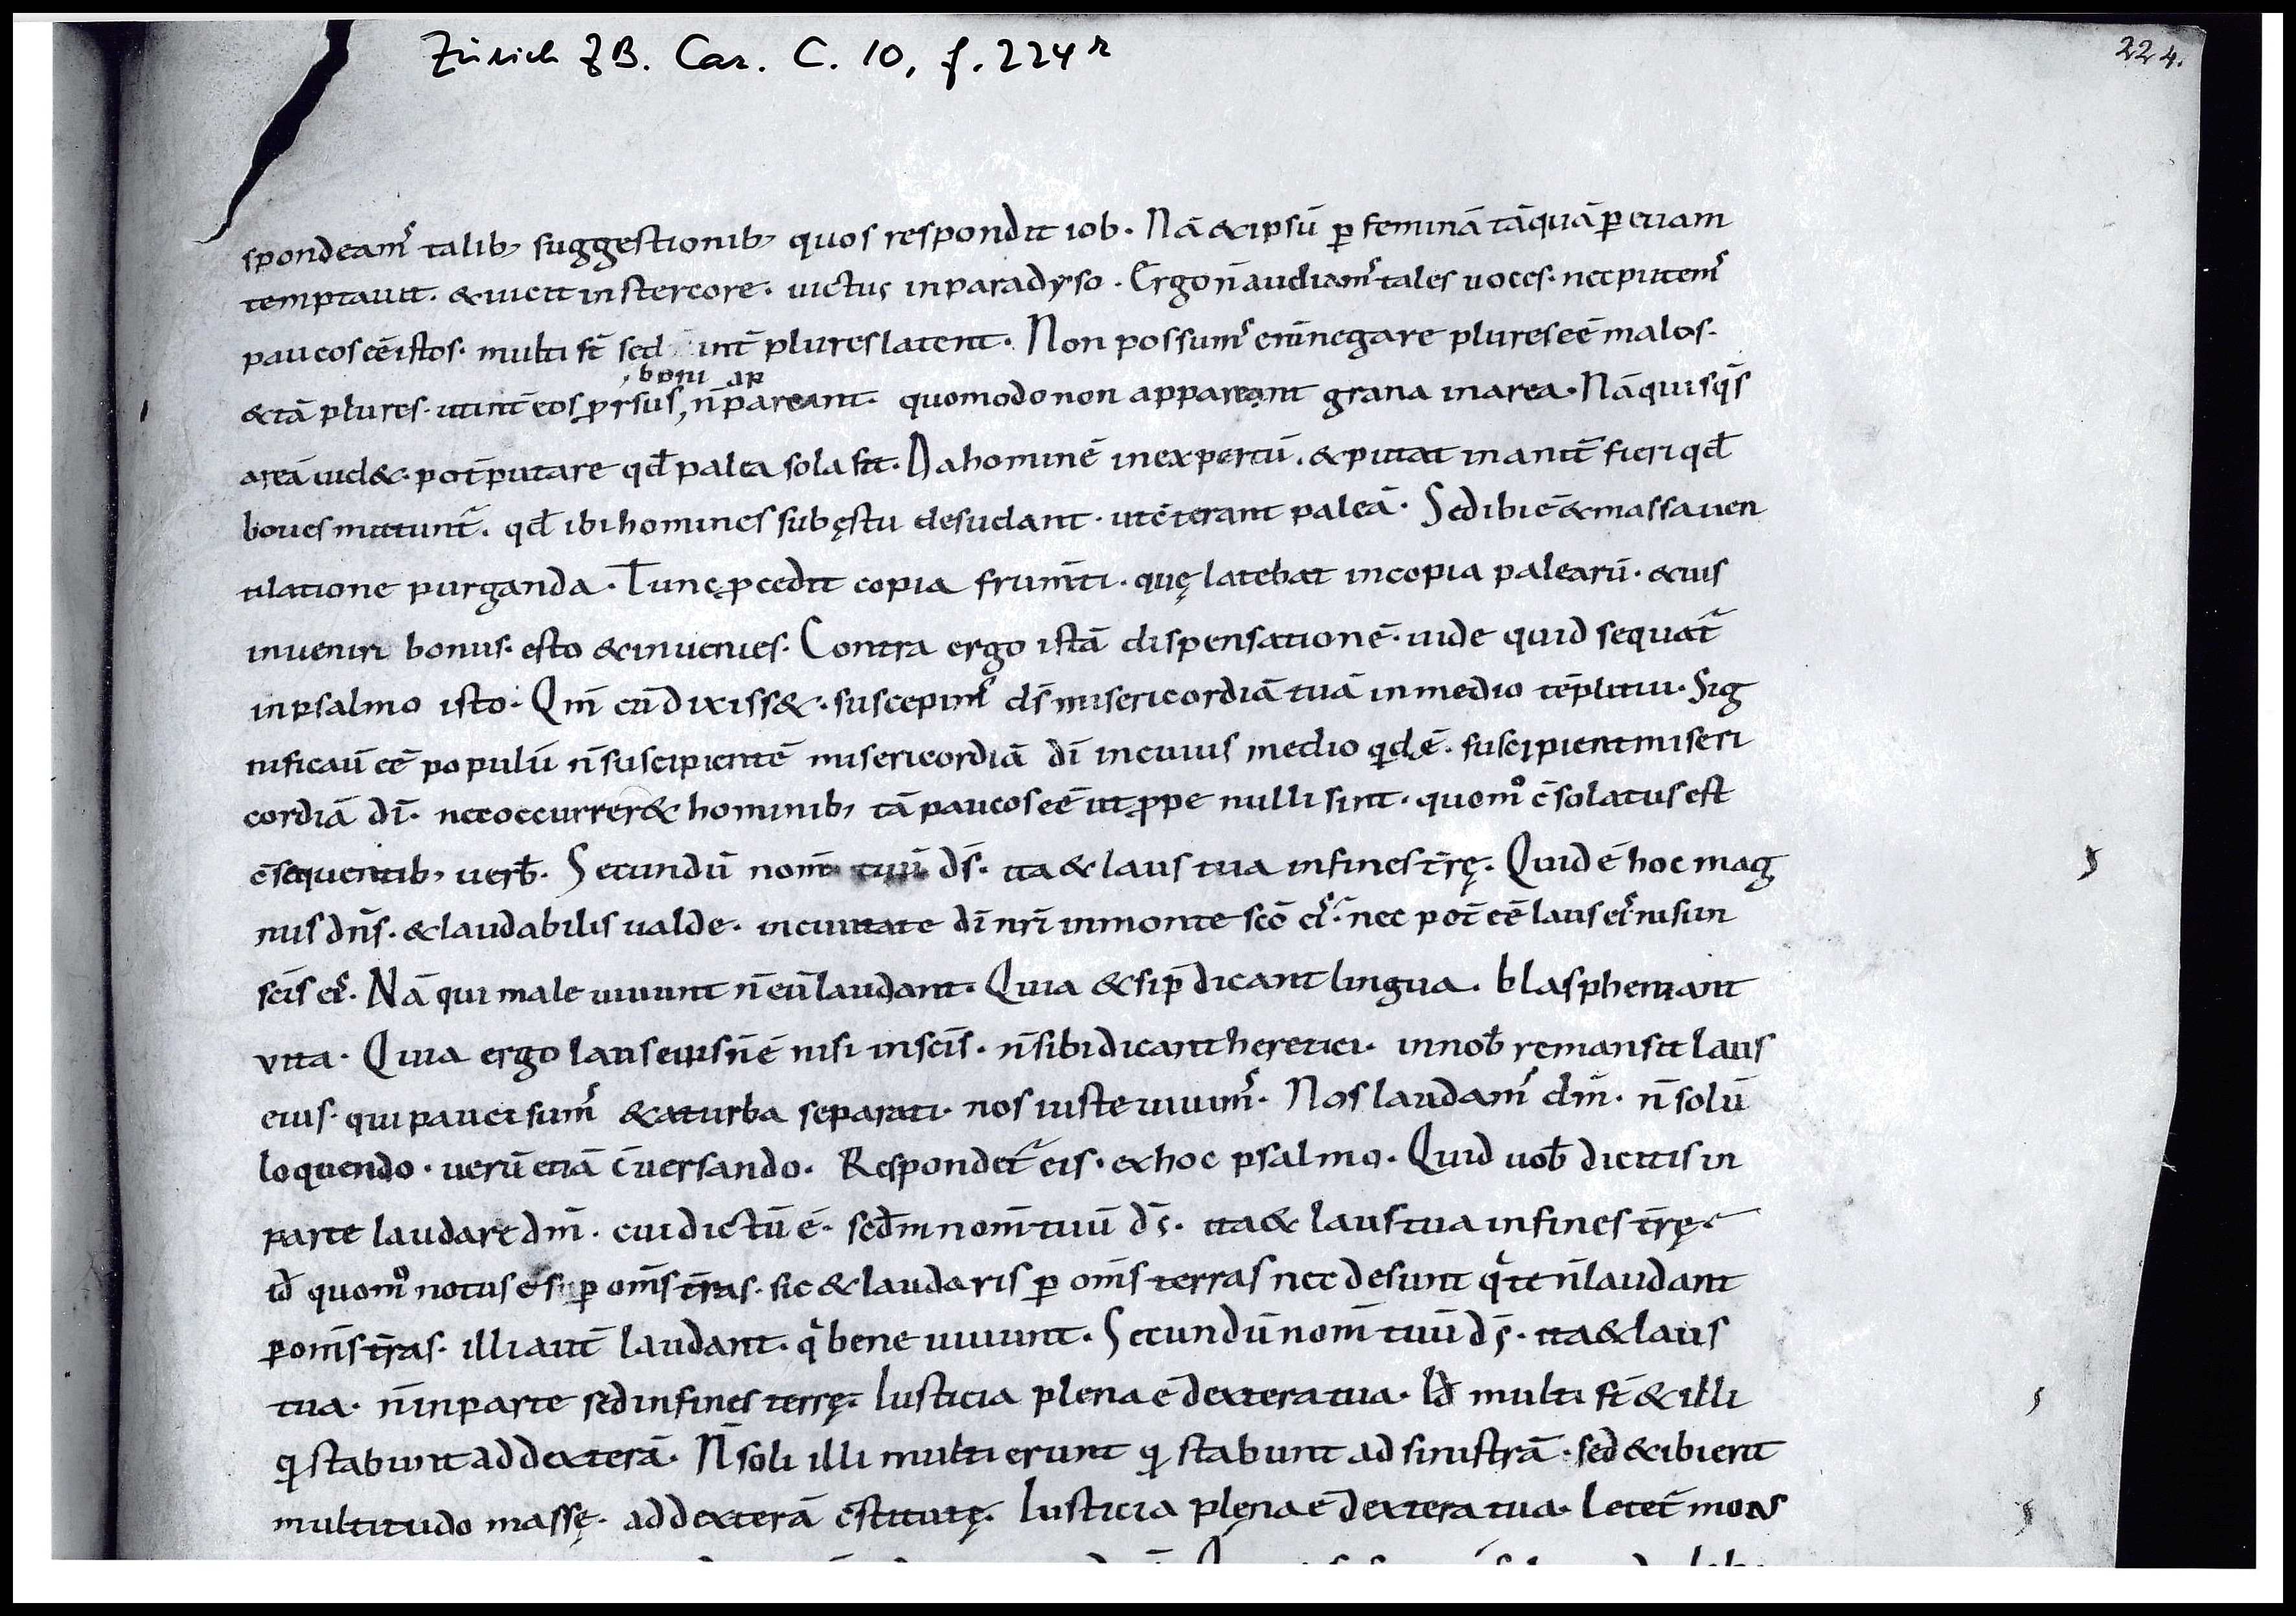 Zürich ZB. Car. C. 10, f. 224r
224.
spondeam᷒ talib; suggestionib; quos respondit iob. Nā & ipsū ꝑ feminā tāquā ꝑ euam
temptauit. & uicit in stercore. uictus in paradyso. Ergo n̄ audiam᷒ tales uoces. nec putem᷒
paucos eē istos. multi st̄ sed int̄ plures latent. Non possum᷒ enī negare plures eē malos.
boni ap
& tā plures. ut int̄ eos ꝓrsus, n̄ pareant. quomodo non appareant grana in area. Nā quisq̄s
areā uid&. pot̄ putare qd̄ palea sola sit. Da hominē inexpertū. & putat inanit̄ fieri qd̄
boues mittunt᷑. qd̄ ibi homines sub ęstu desudant. ut c̄terant paleā. Sed ibi ē & massa uen
tilatione purganda. Tunc ꝓcedit copia frum̄ti. quę latebat in copia palearū. & uis
inuenire bonus. esto & inuenies. Contra ergo istā dispensationē. uide quid sequat᷑
in psalmo isto. Qm̄ cū dixiss&. suscepim᷒ d̄s misericordiā tuā in medio tēpli tui. Sig
nificauit̄ eē populū n̄ suscipientē misericordiā dī in cuius medio qͥdē. suscipient miseri
cordiā dī. ne occurrer& hominib; tā paucos eē ut ꝓpe nulli sint. quom̊ c̄solatus est
c̄sequentib; uerb̄. Secundū nom̄ tuū d̄s. ita & laus tua in fines t̄rę. Quid ē hoc mag
nus dn̄s. & laudabilis ualde. in ciuitate dī nr̄i in monte scō ei᷒. nec pot̄ eē laus ei᷒ nisi in
scīs ei᷒. Nā qui male uiuunt n̄ eū laudant. Quia & si p̄dicant lingua. blasphemant
vita. Quia ergo laus eius n̄ ē nisi in scīs. n̄ sibi dicant heretici. in nob̄ remansit laus
eius. qui pauci sum᷒ & a turba separati. nos iuste uiuim᷒. Nos laudam᷒ dm̄. n̄ solū
loquendo. uerū etiā c̄uersando. Respondet᷑ eis. ex hoc psalmo. Quid uob̄ dicitis in
parte laudare dm̄. cui dictū ē. sed̄m nom̄ tuū d̄s. ita & laus tua in fines t̄rę.
id̄ quom̊ notus es ꝑ om̄s t̄ras. sic & laudaris ꝑ om̄s terras nec desunt qͥ te n̄ laudant
ꝑ om̄s t̄ras. illi aut̄ laudant. qͥ bene uiuunt. Secundū nom̄ tuū d̄s. ita & laus
tua. n̄ in parte sed in fines terrę. Iusticia plena ē dextera tua. Id̄ multi st̄ & illi
qͥ stabunt ad dexterā. N̄ soli illi multi erunt qͥ stabunt ad sinistrā. sed & ibi erit
multitudo massę. ad dexterā c̄stitutę. Iusticia plena ē dextera tua. Letet᷑ mons